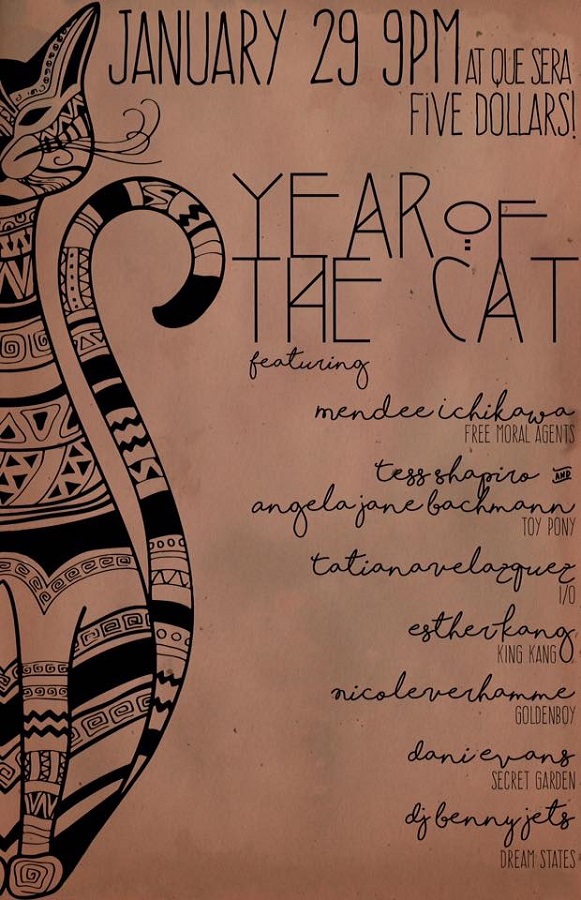 JANUARY 29 9PM AT QUE SERA
FIVE DOLLARS!
YEAR OF
THE CAT
featuring
mendee ichikawa
FREE MORAL AGENTS
tess shapiro AND
angela jane bachmann
TOY PONY
tatiana velazquez
I/O
esther kang
KING KANG
nicole verhamme
GOLDENBOY
dani evans
SECRET GARDEN
dj benny jets
DREAM STATES